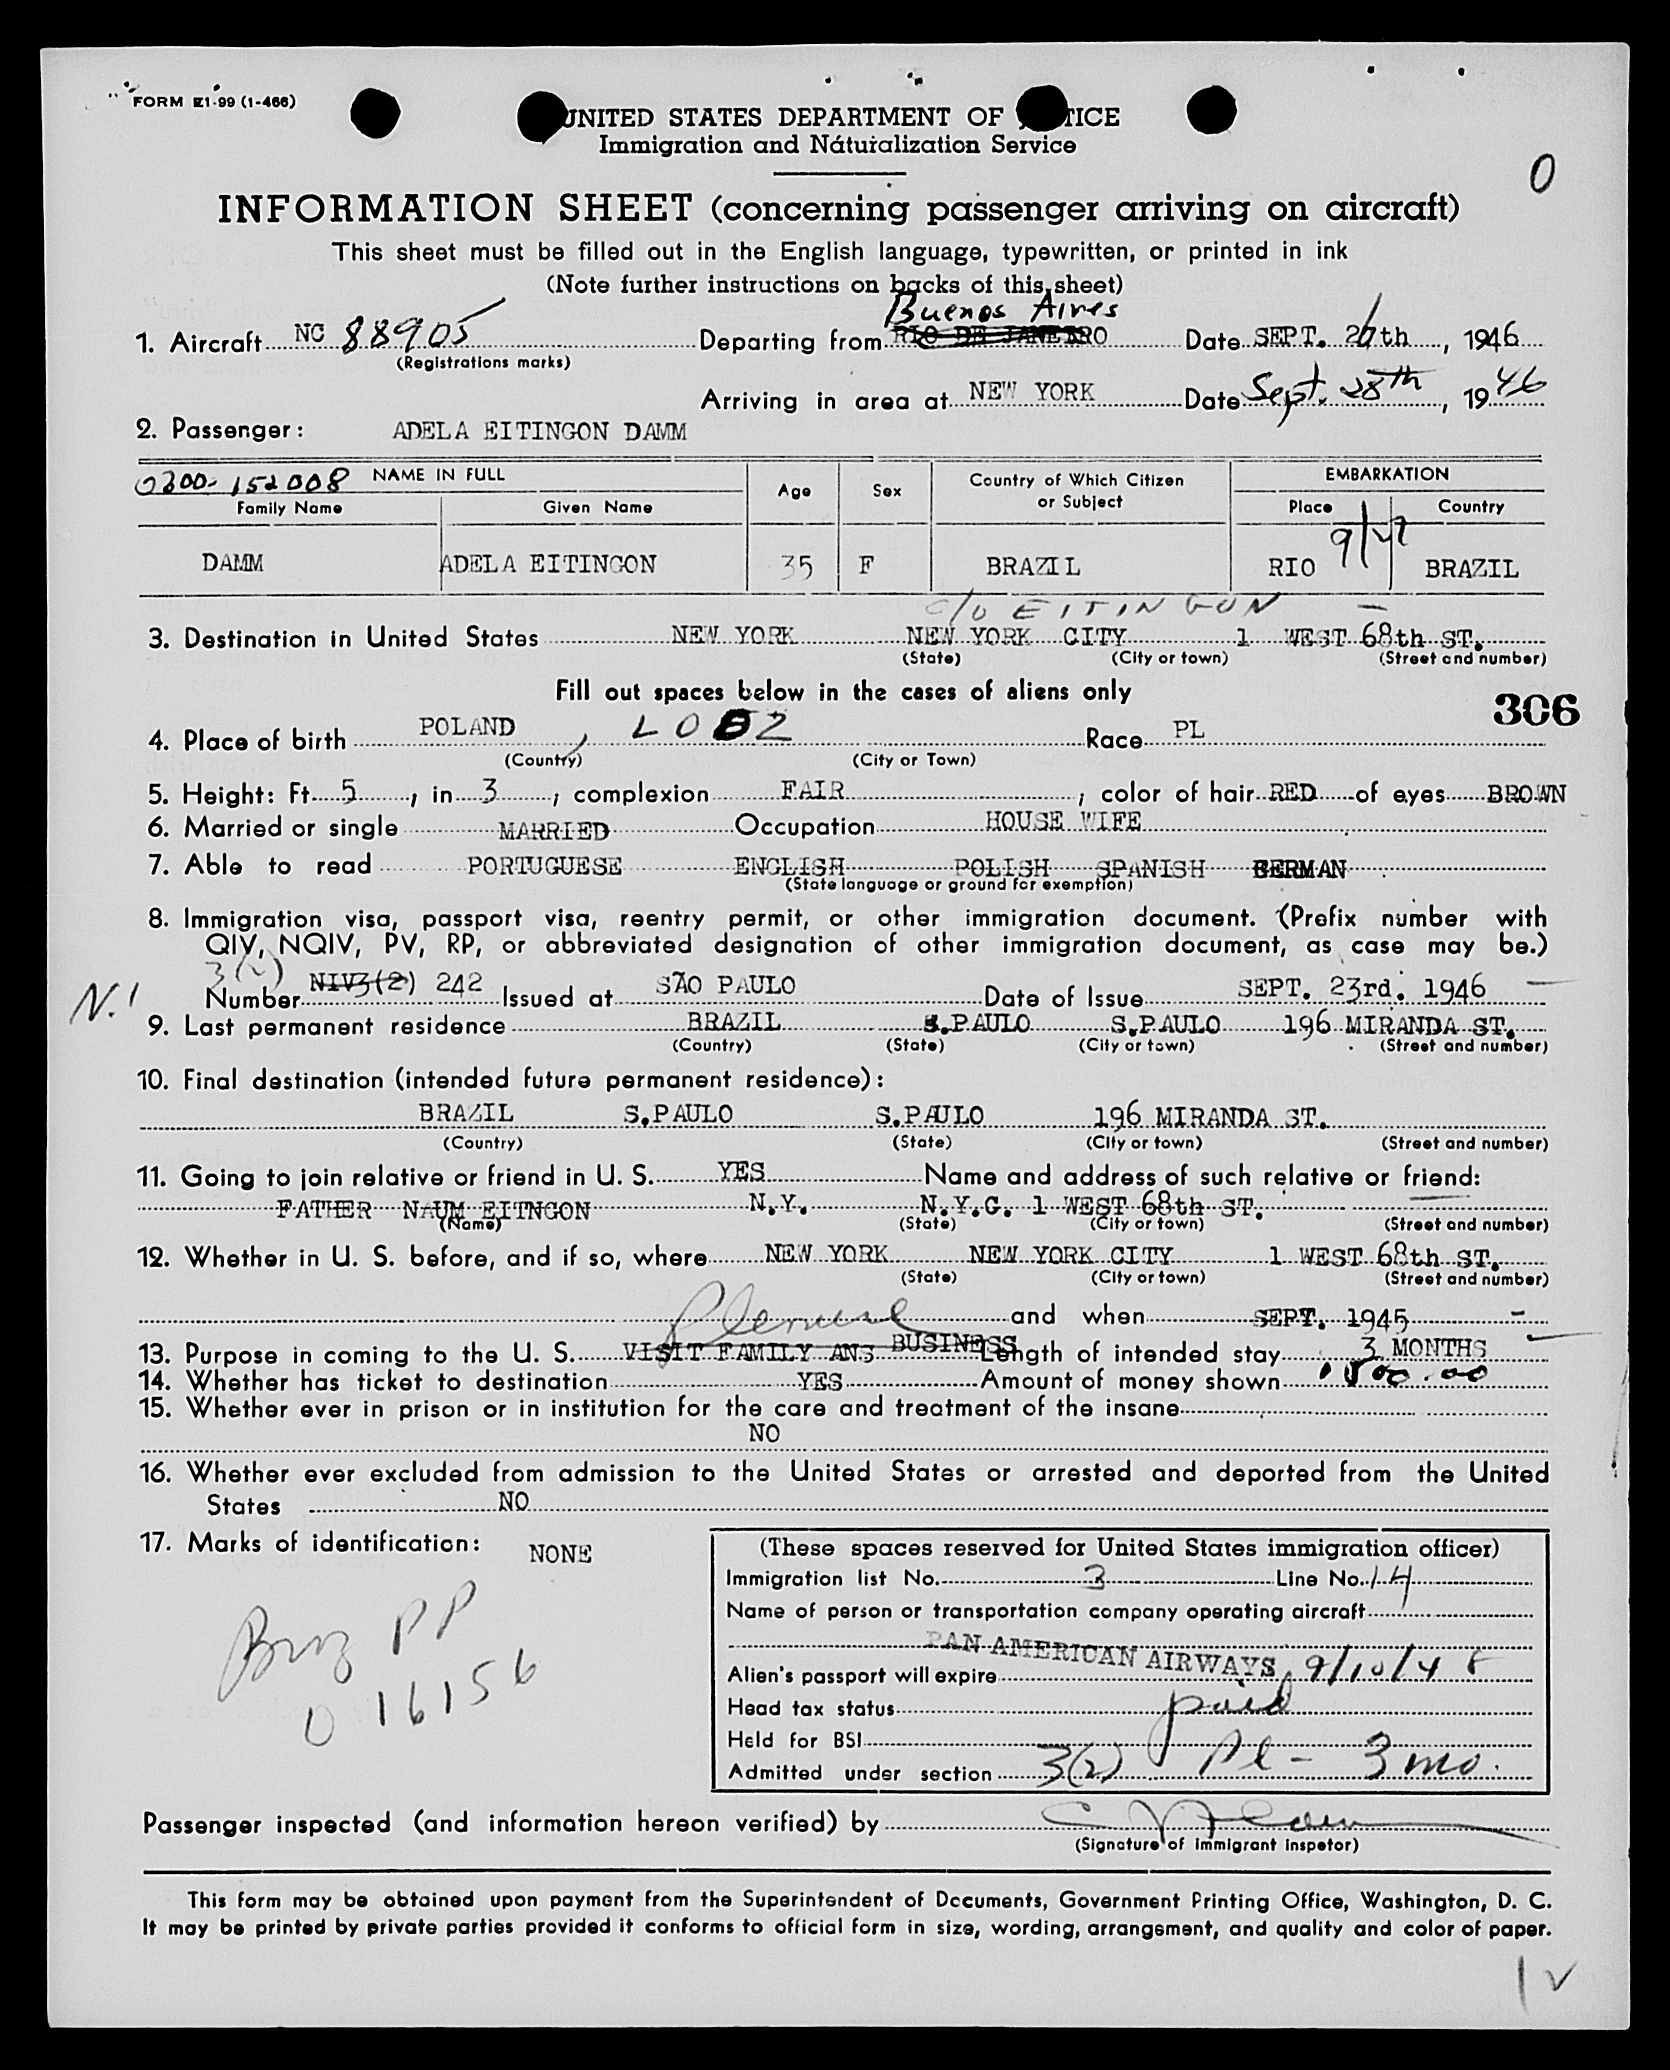 FORM I-99 (1-466)
UNITED STATES DEPARTMENT OF TICE
Immigration and Naturalization Service
0
INFORMATION SHEET (concerning passenger arriving on aircraft)
This sheet must be filled out in the English language, typewritten, or printed in ink
(Note further instructions on backs of this sheet)
Buenos Aires
1. Aircraft NC 88905 Departing from RIO DE JANEIRO Date SEPT. 26th, 1946
(Registrations marks)
Arriving in area at NEW YORK Date Sept. 28th, 1946
2. Passenger: ADELA EITINGON DAMM
0300-152008 NAME IN FULL Age Sex Country of Which Citizen or Subject EMBARKATION
Family Name Given Name Place Country
9/47
DAMM ADELA EITINGON 35 F BRAZIL RIO BRAZIL
c/o EITINGON
3. Destination in United States NEW YORK NEW YORK CITY 1 WEST 68th ST.
(State) (City or town) (Street and number)
Fill out spaces below in the cases of aliens only
306
4. Place of birth POLAND, LODZ Race PL
(Country) (City or Town)
5. Height: Ft. 5, in 3; complexion FAIR; color of hair RED of eyes BROWN
6. Married or single MARRIED Occupation HOUSE WIFE
7. Able to read PORTUGUESE ENGLISH POLISH SPANISH GERMAN
(State language or ground for exemption)
8. Immigration visa, passport visa, reentry permit, or other immigration document. (Prefix number with
QIV, NQIV, PV, RP, or abbreviated designation of other immigration document, as case may be.)
3(2)
N.I Number NIV3(2) 242 Issued at SÃO PAULO Date of Issue SEPT. 23rd. 1946
9. Last permanent residence BRAZIL S.PAULO S.PAULO 196 MIRANDA ST.
(Country) (State) (City or town) (Street and number)
10. Final destination (intended future permanent residence):
BRAZIL S.PAULO S.PAULO 196 MIRANDA ST.
(Country) (State) (City or town) (Street and number)
11. Going to join relative or friend in U. S. YES Name and address of such relative or friend:
FATHER NAUM EITNGON N.Y. N.Y.C. 1 WEST 68th ST.
(Name) (State) (City or town) (Street and number)
12. Whether in U. S. before, and if so, where NEW YORK NEW YORK CITY 1 WEST 68th ST.
(State) (City or town) (Street and number)
Pleasure and when SEPT. 1945
13. Purpose in coming to the U. S. VISIT FAMILY ANS BUSINESS Length of intended stay 3 MONTHS
14. Whether has ticket to destination YES Amount of money shown 1500.00
15. Whether ever in prison or in institution for the care and treatment of the insane
NO
16. Whether ever excluded from admission to the United States or arrested and deported from the United
States NO
17. Marks of identification: NONE
Braz PP
016156
(These spaces reserved for United States immigration officer)
Immigration list No. 3 Line No. 14
Name of person or transportation company operating aircraft
PAN AMERICAN AIRWAYS
Alien's passport will expire 9/10/48
Head tax status paid
Held for BSI
Admitted under section 3(2) Pl - 3 mo.
Passenger inspected (and information hereon verified) by
(Signature of Immigrant Inspetor)
This form may be obtained upon payment from the Superintendent of Documents, Government Printing Office, Washington, D. C.
It may be printed by private parties provided it conforms to official form in size, wording, arrangement, and quality and color of paper.